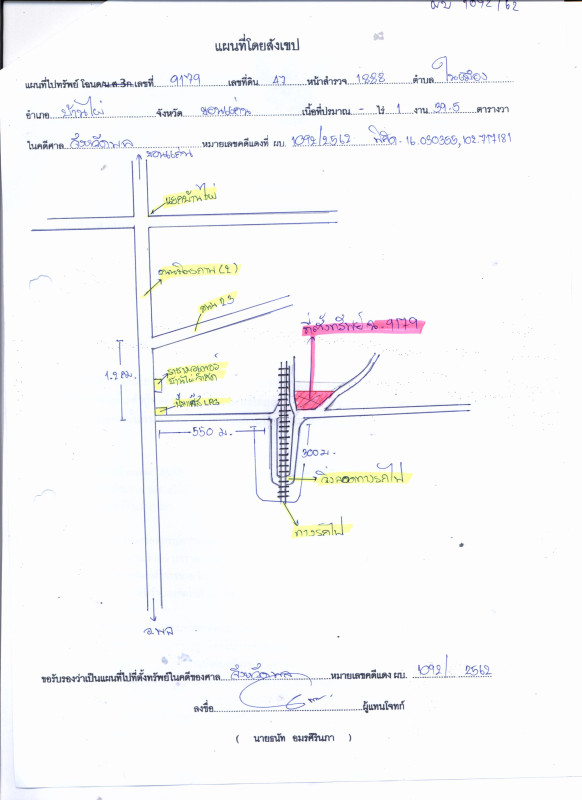 ผบ 1092/62
แผนที่โดยสังเขป
แผนที่ไปทรัพย์ โฉนด/น.ส.3ก.เลขที่ 9179 เลขที่ดิน 47 หน้าสำรวจ 1888 ตำบล ในเมือง
อำเภอ บ้านไผ่ จังหวัด ขอนแก่น เนื้อที่ประมาณ - ไร่ 1 งาน 39.5 ตารางวา
ในคดีศาล จังหวัดพล หมายเลขคดีแดงที่ ผบ. 1092/2562 พิกัด - 16.050355, 102.717181
ขอนแก่น
แยกบ้านไผ่
ถนนมิตรภาพ (2)
ถนน 23
ที่ตั้งทรัพย์ ฉ. 9179
1.2 กม.
บ้านไผ่ จำกัด
ปั๊มแก๊ส LPG
550 ม.
300 ม.
วิ่งลอดทางรถไฟ
ทางรถไฟ
อ.พล
ขอรับรองว่าเป็นแผนที่ไปที่ตั้งทรัพย์ในคดีของศาล จังหวัดพล หมายเลขคดีแดง ผบ. 1092/ 2562
ลงชื่อ ผู้แทนโจทก์
( นายธนัท อมรศิรินภา )